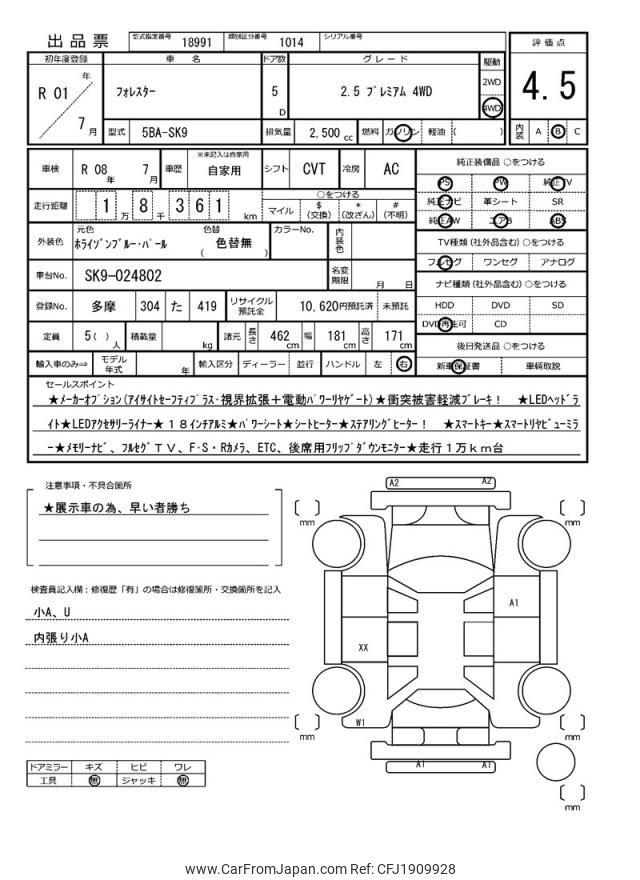 出品票 型式指定番号 18991 類別区分番号 1014 シリアル番号
初年度登録 車名 ドア数 グレード 駆動 評価点
R 01 年 7 月 フォレスター 5 D 2.5 プレミアム 4WD 2WD 4WD 4.5
型式 5BA-SK9 排気量 2,500 cc 燃料 ガソリン 軽油 ( ) 内装 A B C
車検 R 08 年 7 月 車歴 ※未記入は自家用 自家用 シフト CVT 冷房 AC
走行距離 1 万 8 千 3 6 1 km ○をつける マイル $ (交換) * (改ざん) # (不明)
外装色 元色 ホライゾンブルー・パール 色替 ( 色替無 ) カラーNo. 内装色
車台No. SK9-024802 名変期限 月 日
登録No. 多摩 304 た 419 リサイクル預託金 10,620円預託済 未預託
定員 5 ( ) 人 積載量 kg 諸元 長さ 462 cm 幅 181 cm 高さ 171 cm
輸入車のみ⇨ モデル年式 年 輸入区分 ディーラー 並行 ハンドル 左 右
純正装備品 ○をつける
PS PW 純正TV
純正ナビ 革シート SR
純正AW エアB ABS
TV種類 (社外品含む) ○をつける
フルセグ ワンセグ アナログ
ナビ種類 (社外品含む) ○をつける
HDD DVD SD
DVD再生可 CD
後日発送品 ○をつける
新車保証書 車輌取説
セールスポイント
★メーカーオプション(アイサイトセーフティプラス・視界拡張+電動パワーリヤゲート)★衝突被害軽減ブレーキ! ★LEDヘッドラ
イト★LEDアクセサリーライナー★18インチアルミ★パワーシート★シートヒーター★ステアリングヒーター! ★スマートキー★スマートリヤビューミラ
ー★メモリーナビ、フルセグTV、F・S・Rカメラ、ETC、後席用フリップダウンモニター★走行1万km台
注意事項・不具合箇所
★展示車の為、早い者勝ち
検査員記入欄:修復歴「有」の場合は修復箇所・交換箇所を記入
小A、U
内張り小A
ドアミラー キズ ヒビ ワレ
工具 無 ジャッキ 無
A2 A2
mm mm
A1
XX
W1
mm mm
A1 A1
mm
www.CarFromJapan.com Ref: CFJ1909928